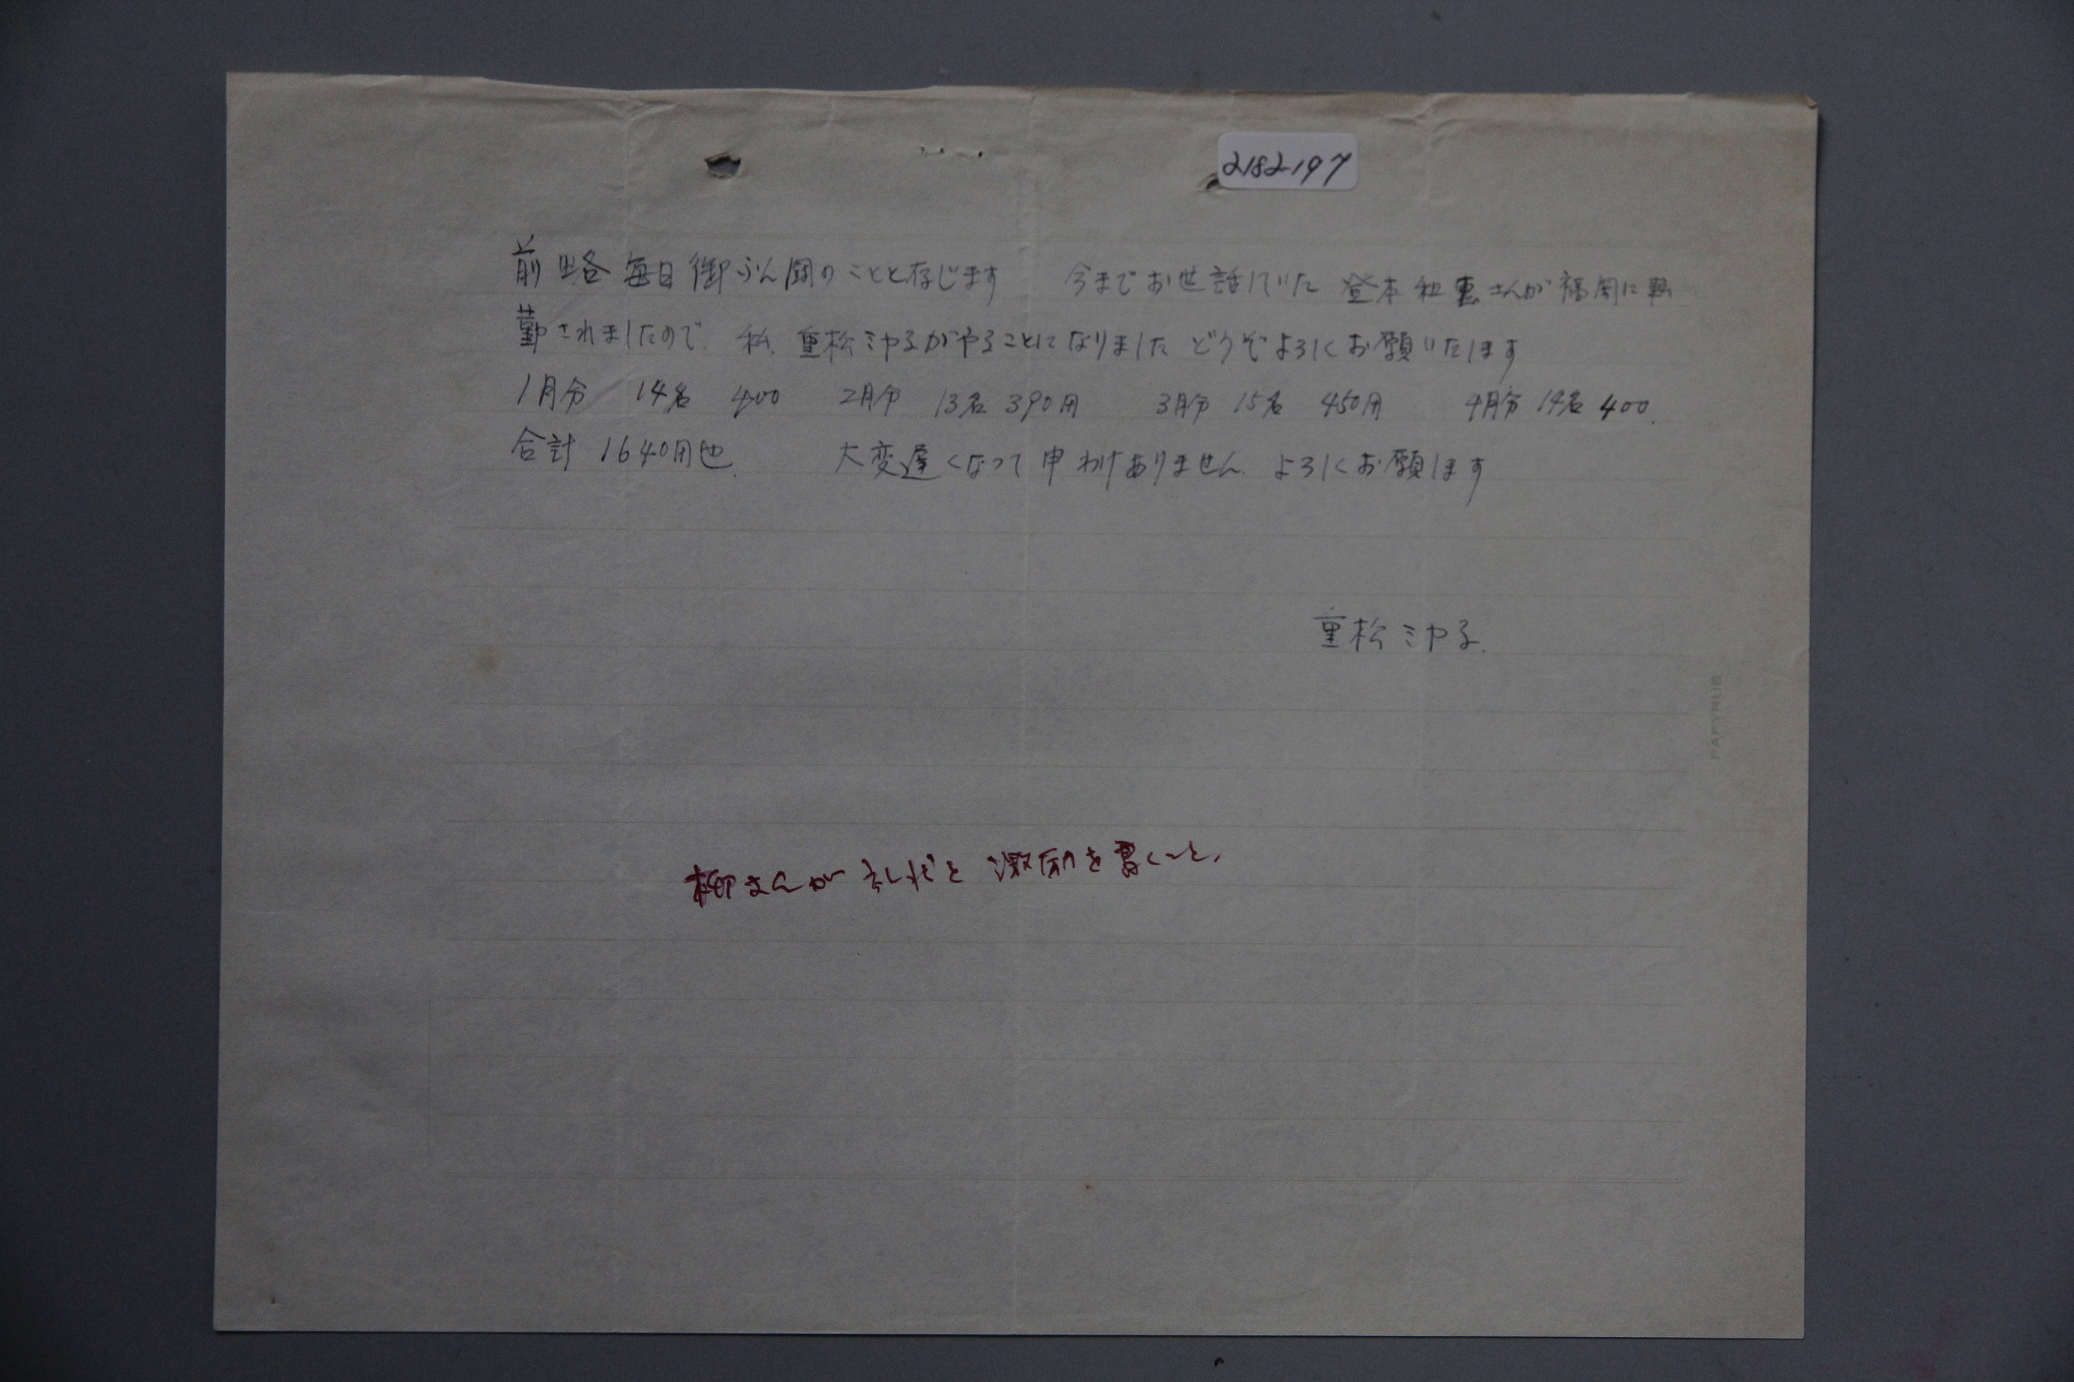 2182-197
前略 毎日御ふん闘のことと存じます 今までお世話していた 登本和恵さんが福岡に転
勤されましたので、私、重松ミヤ子がやることになりました どうぞよろしくお願いいたします
1月分 14名 400 2月分 13名 390円 3月分 15名 450円 4月分 14名 400.
合計 1640円也. 大変遅くなって申わけありません. よろしくお願します
重松ミヤ子.
柳さんが お礼と 激励を書くこと.
PAPYRUS